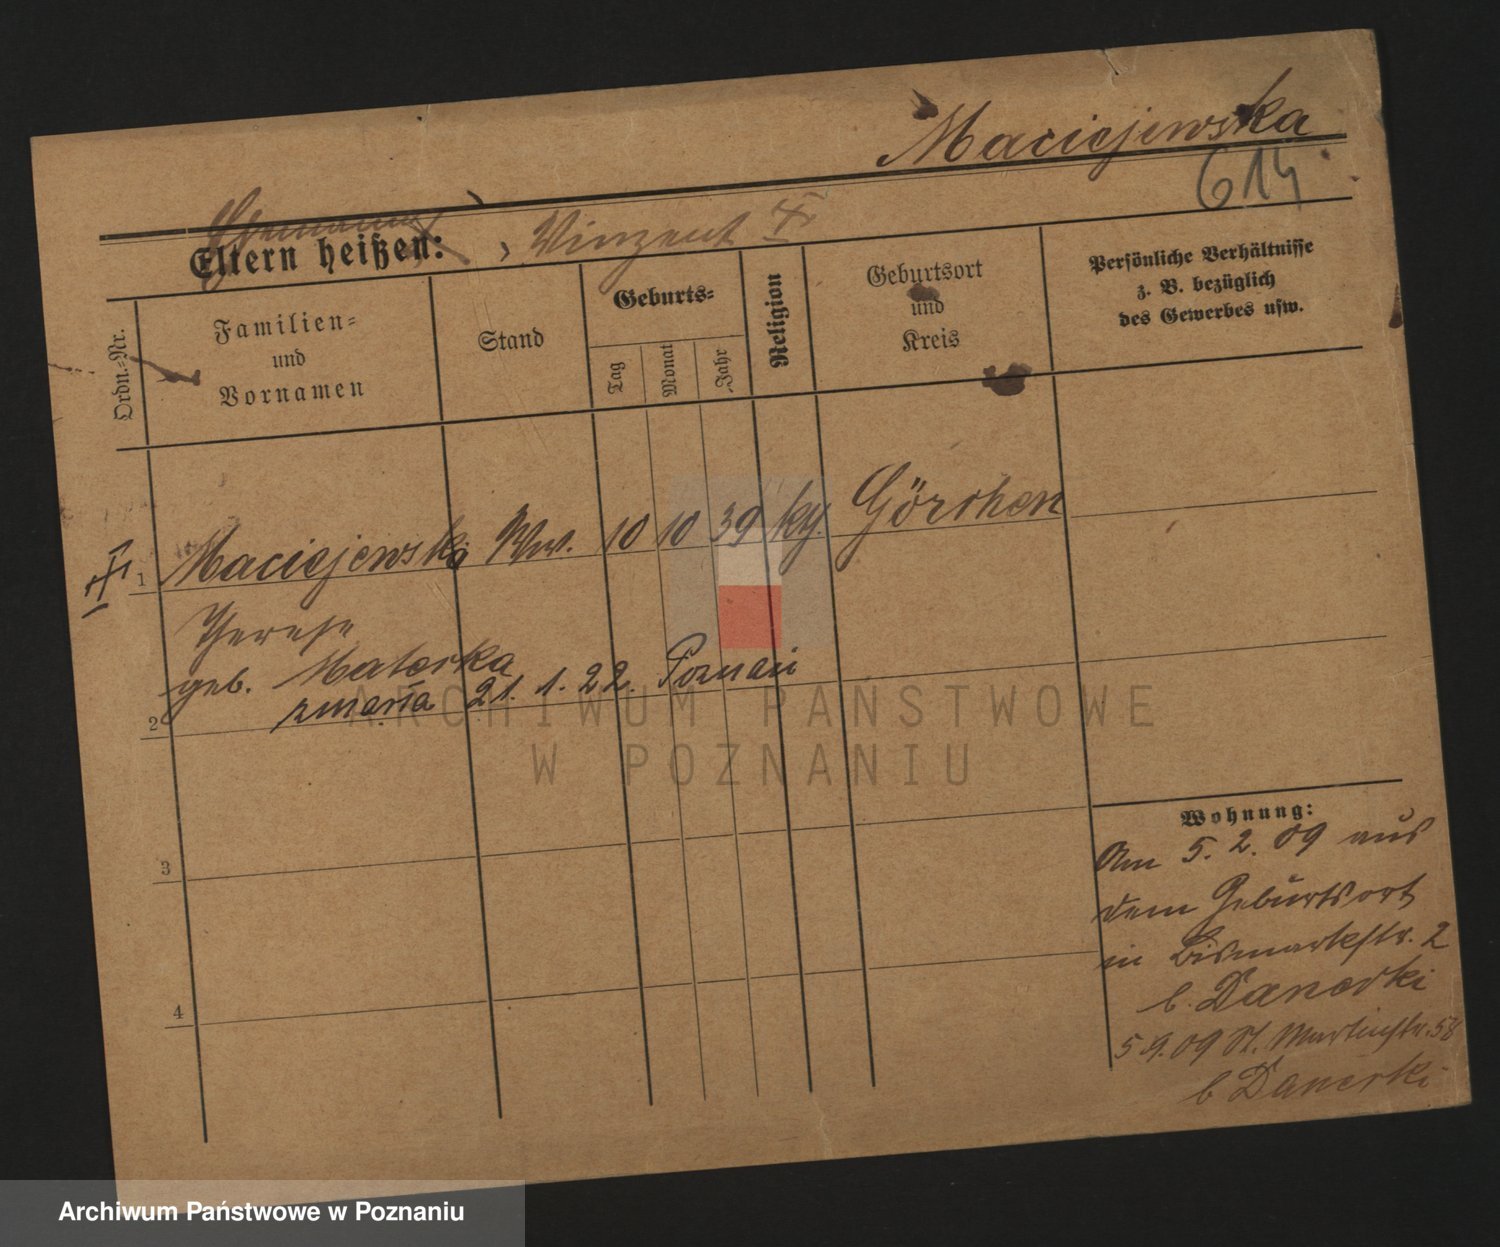 Maciejewska
614
Ehemann
Eltern heißen: Vinzent
Ordn.-Nr.
Familien-
und
Vornamen
Stand
Geburts-
Tag
Monat
Jahr
Religion
Geburtsort
und
Kreis
Persönliche Verhältnisse
z. B. bezüglich
des Gewerbes usw.
1 Maciejewski Ww. 10 10 39 kth. Görchen
Therese
geb. Materka
zmarła 21. 1. 22. Poznań
2
3
4
Wohnung:
Am 5. 2. 09 aus
dem Geburtsort
in Bismarckstr. 2
b. Danecki
5 9. 09 St. Martinstr. 58
b Danecki
ARCHIWUM PAŃSTWOWE
W POZNANIU
Archiwum Państwowe w Poznaniu